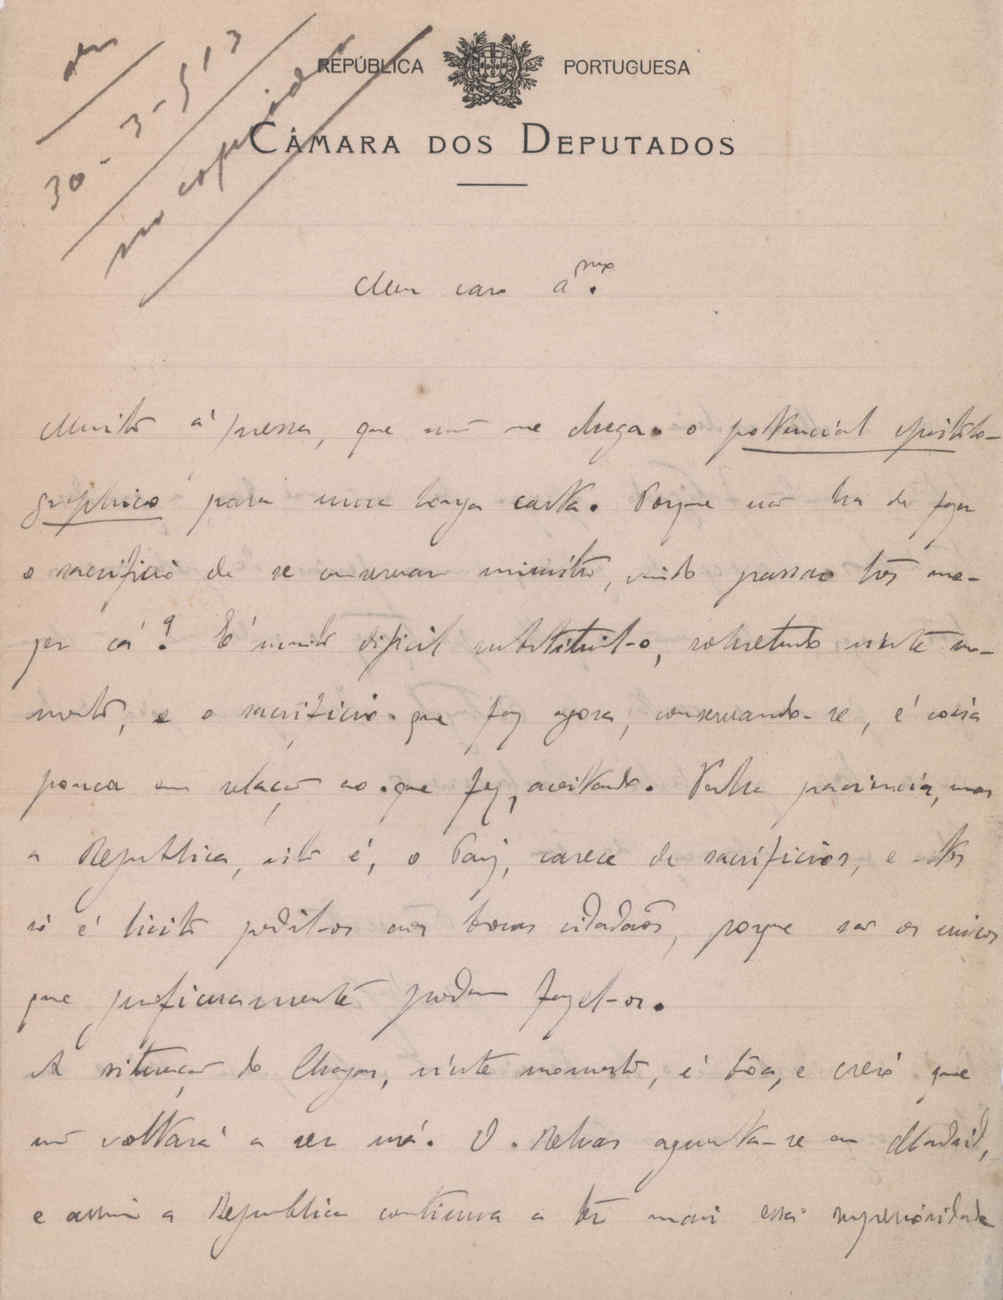 REPÚBLICA PORTUGUESA
CÂMARA DOS DEPUTADOS
30-3-913
Meu caro a.mo
Muito á pressa, que não me chega o pottencial epistolo-
graphico para uma longa carta. Porque não ha de fazer
o sacrificio de se conservar ministro, vindo passar três me-
zes cá? É muito dificil substituil-o, sobretudo n'este mo-
mento, e o sacrificio que fez agora, conservando-se, é coisa
pouca em relação ao que fez, aceitando. Tenha paciencia, mas
a Republica, isto é, o Paiz, carece de sacrificios, e elles
só é licito pedil-os aos bons cidadãos, porque são os unicos
que proficuamente podem fazel-os.
A situação do Chagas, n'este momento, é bôa, e creio que
não voltará a ser má. O Relvas aguenta-se em Madrid,
e assim a Republica continua a ter mais essa superioridade